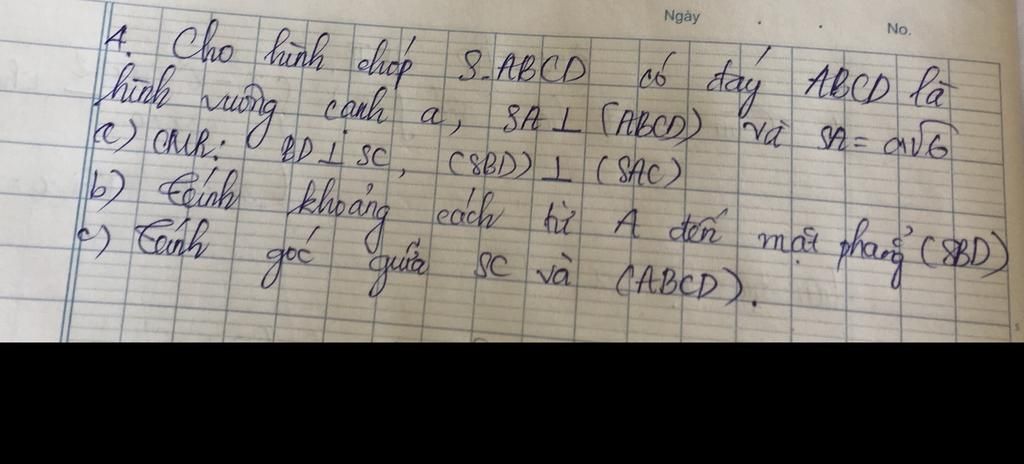 Ngày
No.
4. Cho hình chóp S.ABCD có đáy ABCD là
hình vuông cạnh a, SA ⊥ (ABCD) và SA = a√6
a) CMR: BD ⊥ SC, (SBD) ⊥ (SAC)
b) Tính khoảng cách từ A đến mặt phẳng (SBD)
c) Tính góc giữa SC và (ABCD).